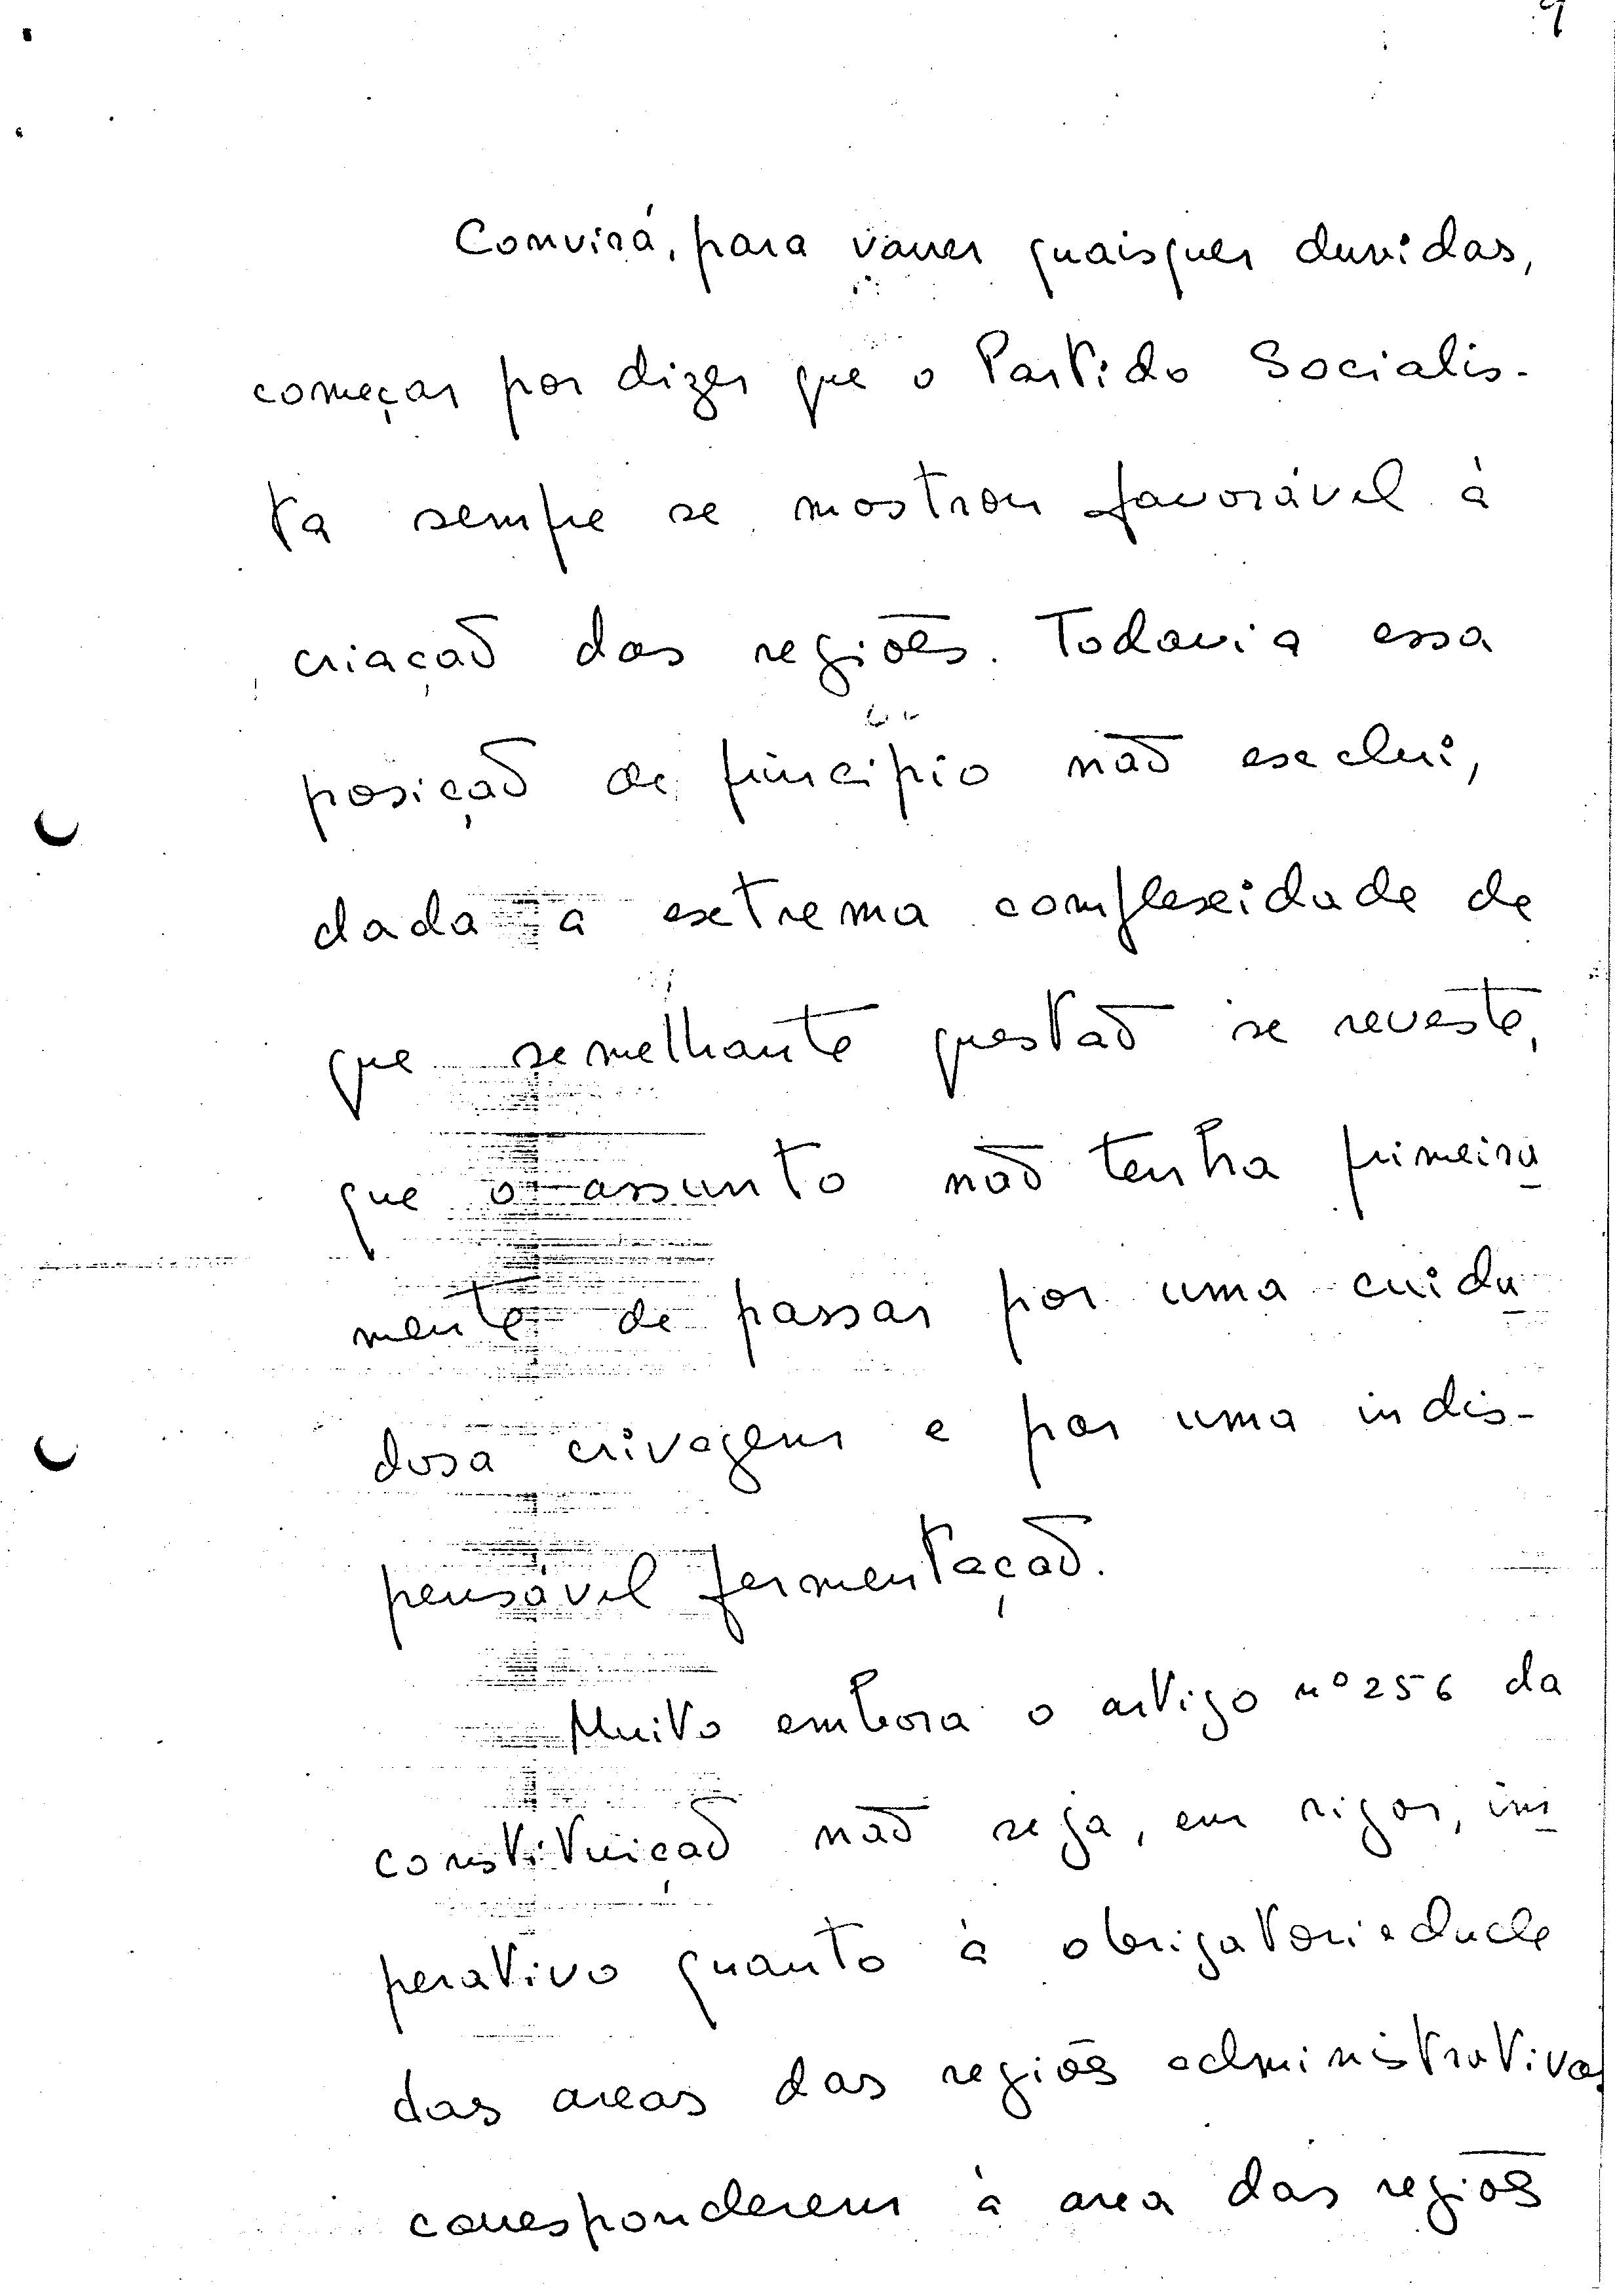 9
Convirá, para varrer quaisquer duvidas,
começar por dizer que o Partido Socialis-
ta sempre se mostrou favorável à
criação das regiões. Todavia essa
posição de princípio não exclui,
dada a extrema complexidade de
que semelhante questão se reveste,
que o assunto não tenha primeira
mente de passar por uma cuida
dosa crivagem e por uma indis-
pensável fermentação.
Muito embora o artigo nº 256 da
constituição não seja, em rigor, im
perativo quanto à obrigatoriedade
das areas das regiões administrativas
corresponderem à area das regiões